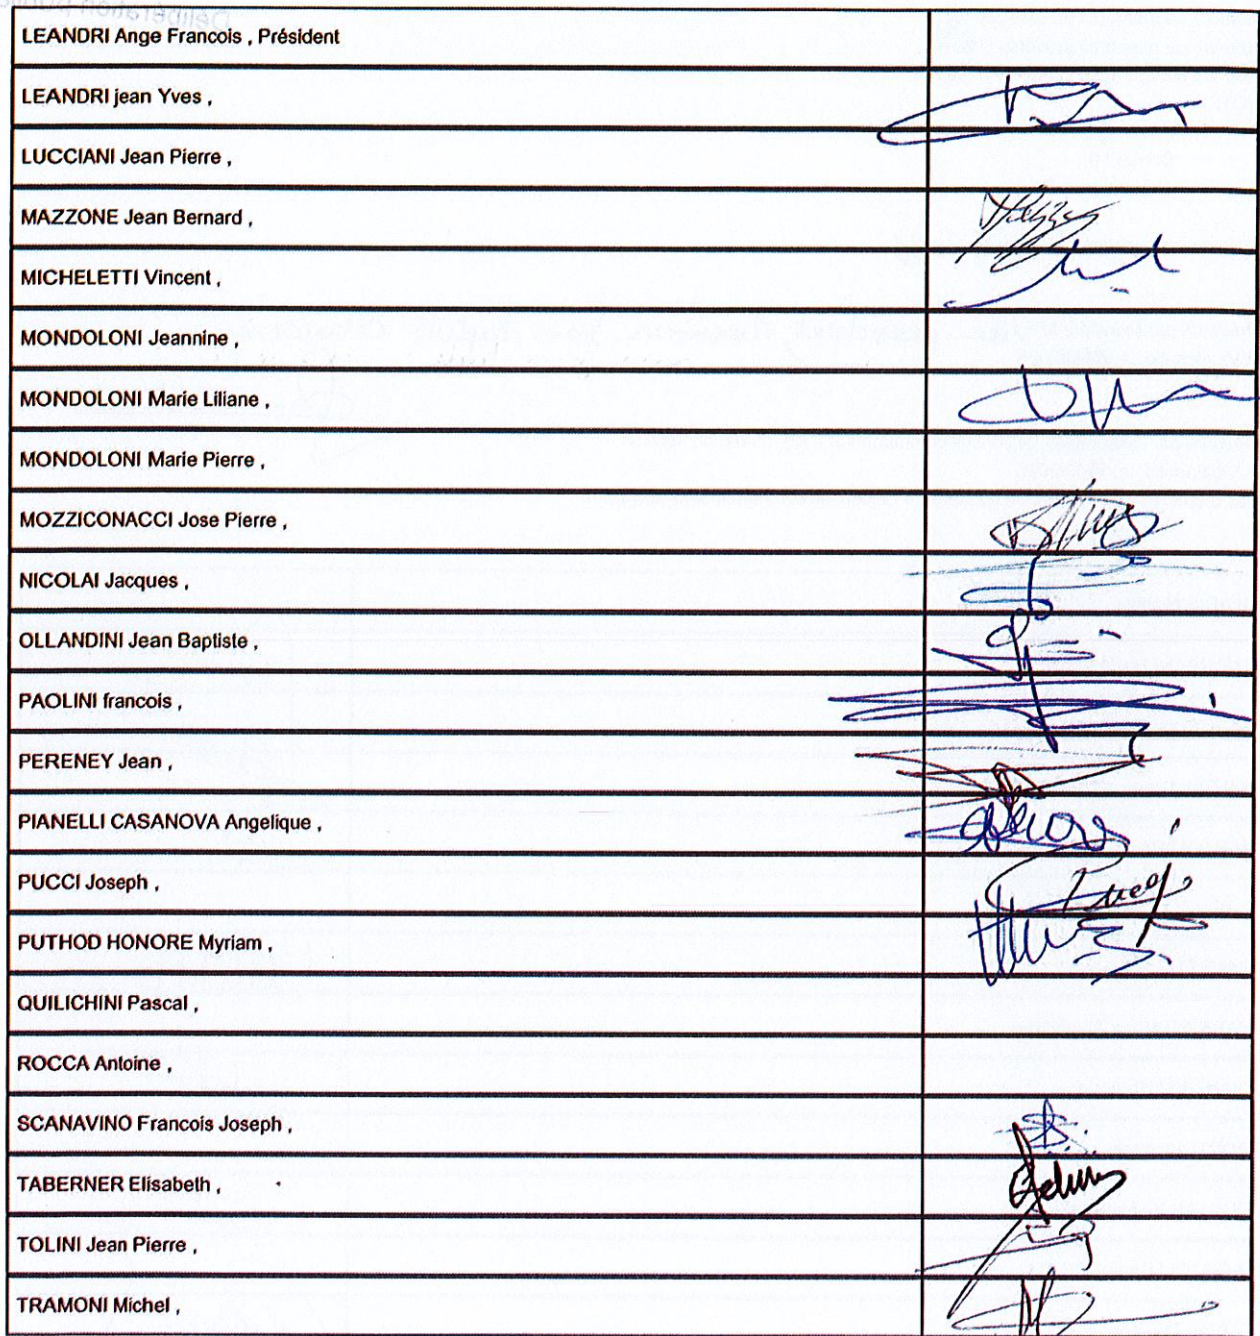 LEANDRI Ange Francois , Président
LEANDRI jean Yves ,
LUCCIANI Jean Pierre ,
MAZZONE Jean Bernard ,
MICHELETTI Vincent ,
MONDOLONI Jeannine ,
MONDOLONI Marie Liliane ,
MONDOLONI Marie Pierre ,
MOZZICONACCI Jose Pierre ,
NICOLAI Jacques ,
OLLANDINI Jean Baptiste ,
PAOLINI francois ,
PERENEY Jean ,
PIANELLI CASANOVA Angelique ,
PUCCI Joseph ,
PUTHOD HONORE Myriam ,
QUILICHINI Pascal ,
ROCCA Antoine ,
SCANAVINO Francois Joseph ,
TABERNER Elisabeth ,
TOLINI Jean Pierre ,
TRAMONI Michel ,